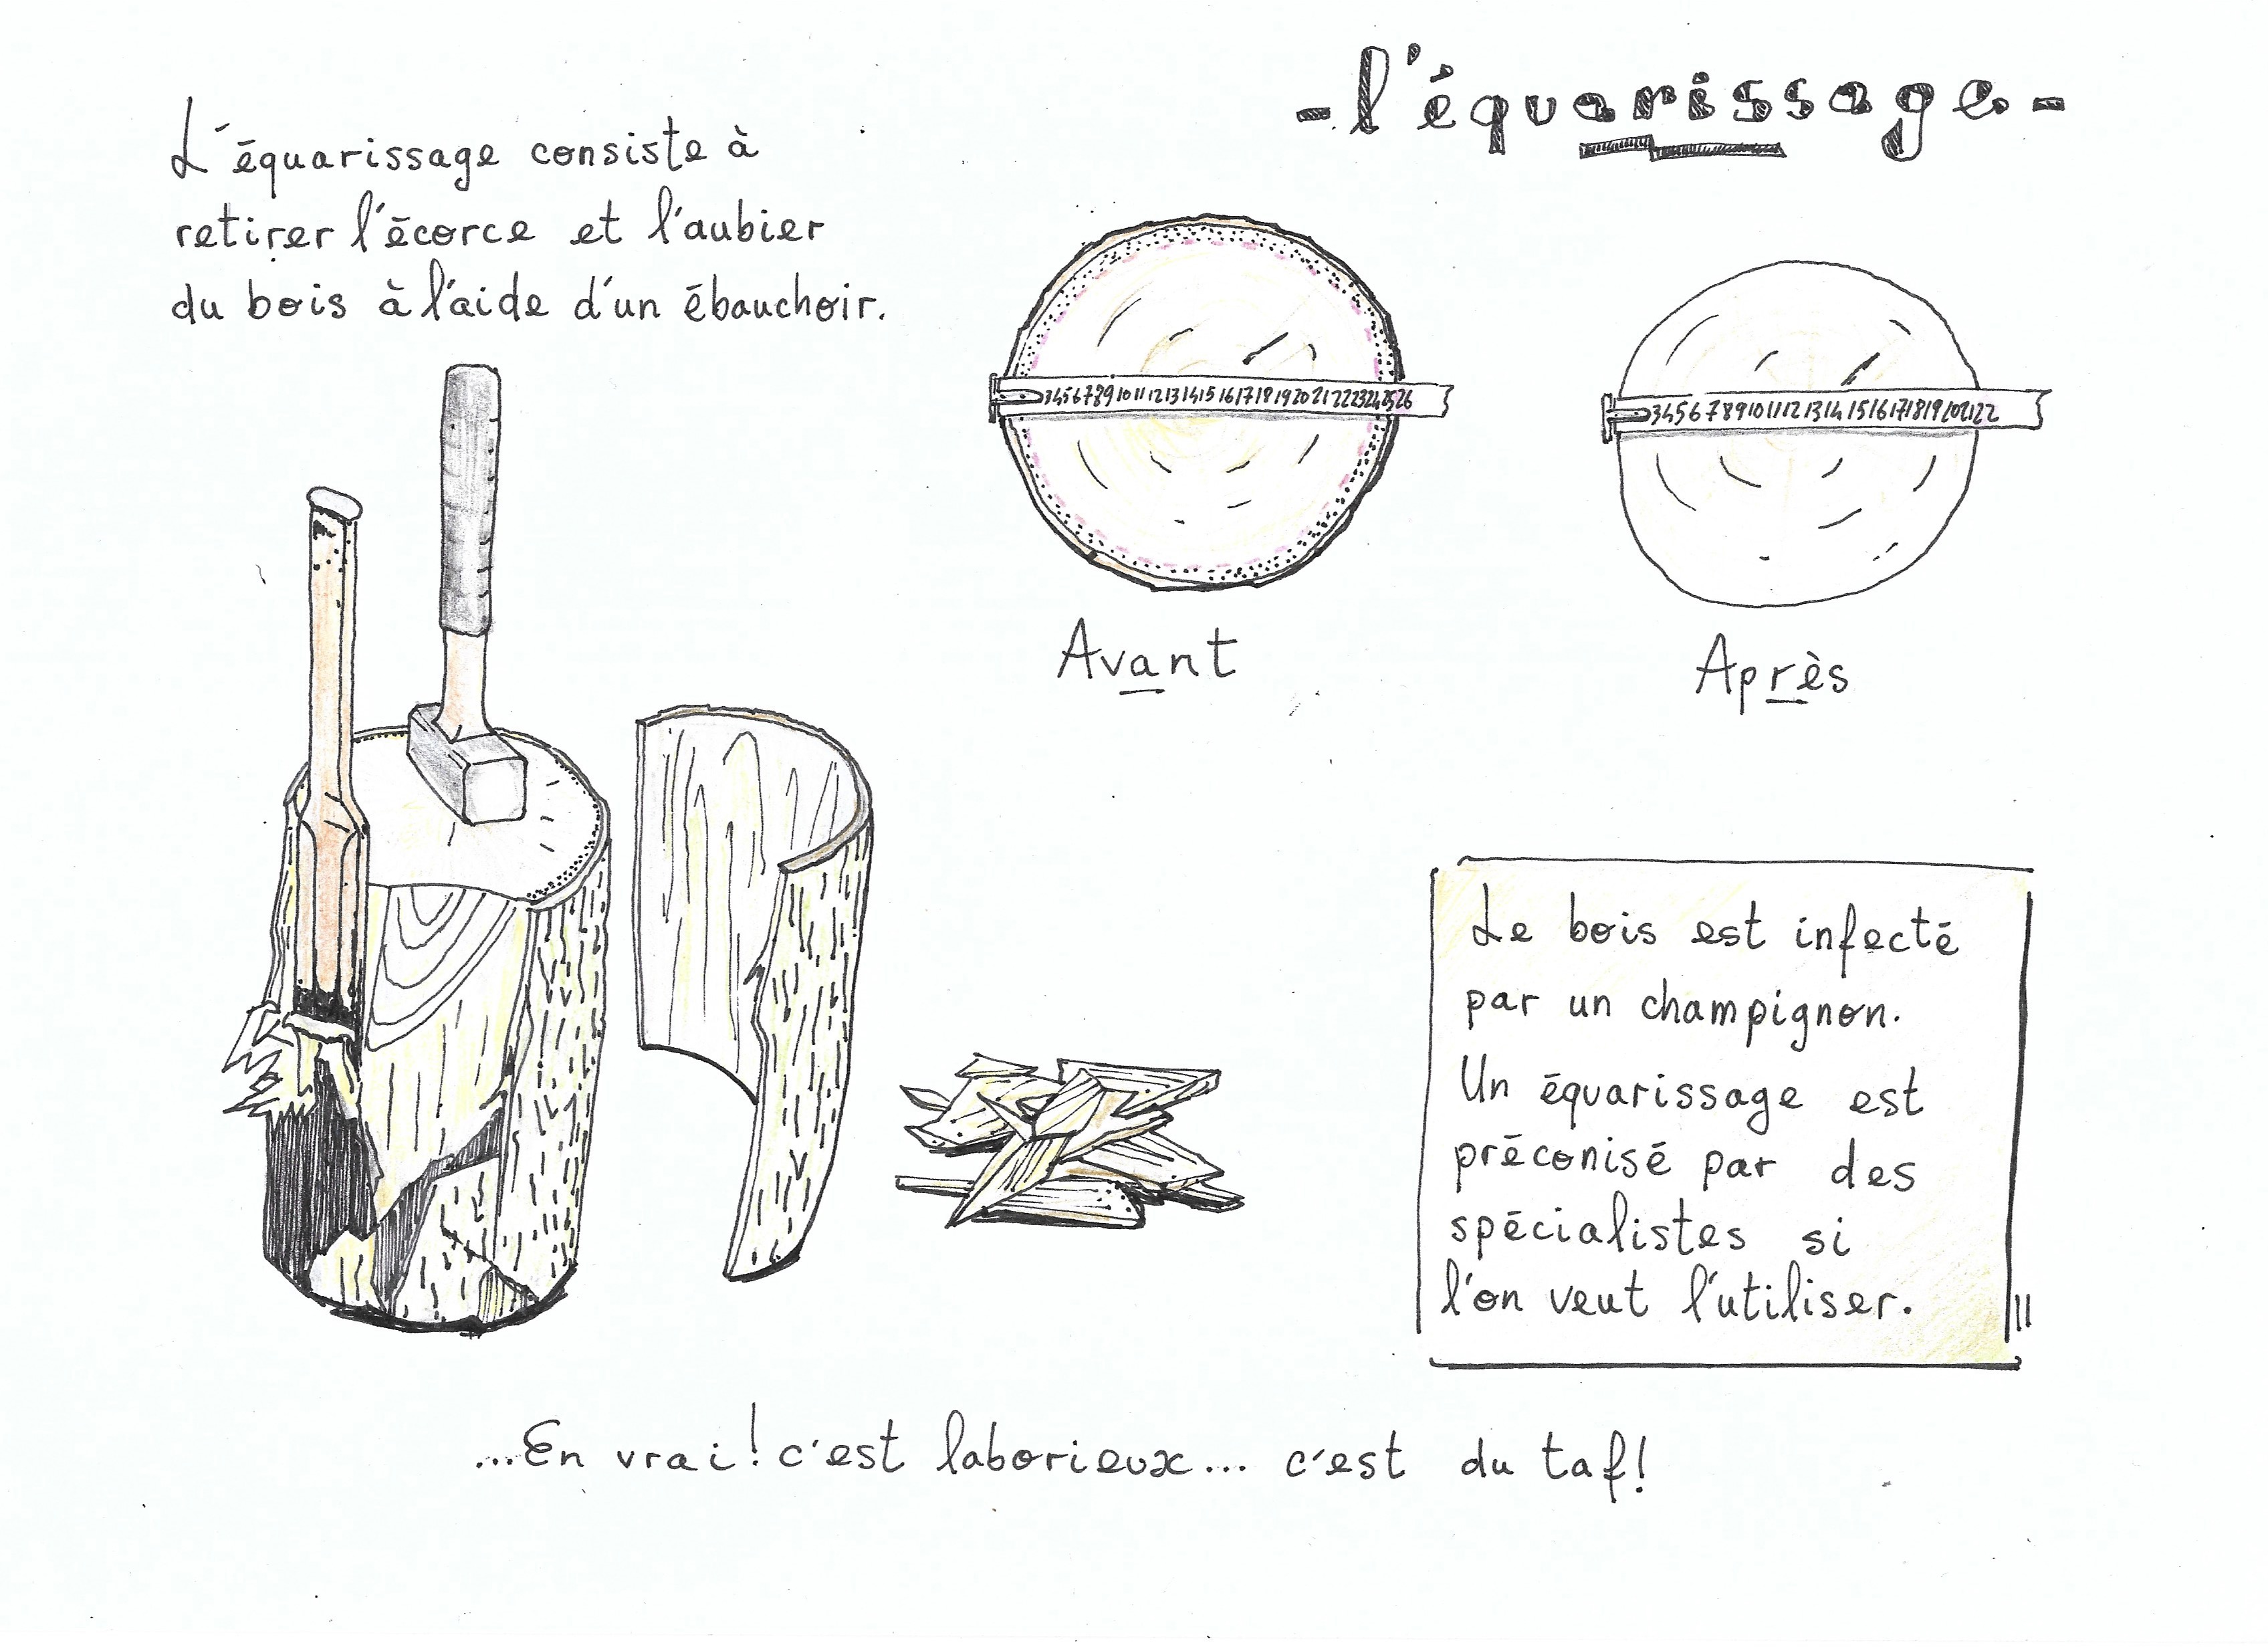 - l'équarissage -
L'équarissage consiste à
retirer l'écorce et l'aubier
du bois à l'aide d'un ébauchoir.
3 4 5 6 7 8 9 10 11 12 13 14 15 16 17 18 19 20 21 22 23 24 25 26
3 4 5 6 7 8 9 10 11 12 13 14 15 16 17 18 19 20 21 22
Avant
Après
Le bois est infecté
par un champignon.
Un équarissage est
préconisé par des
spécialistes si
l'on veut l'utiliser.
...En vrai! c'est laborieux... c'est du taf!